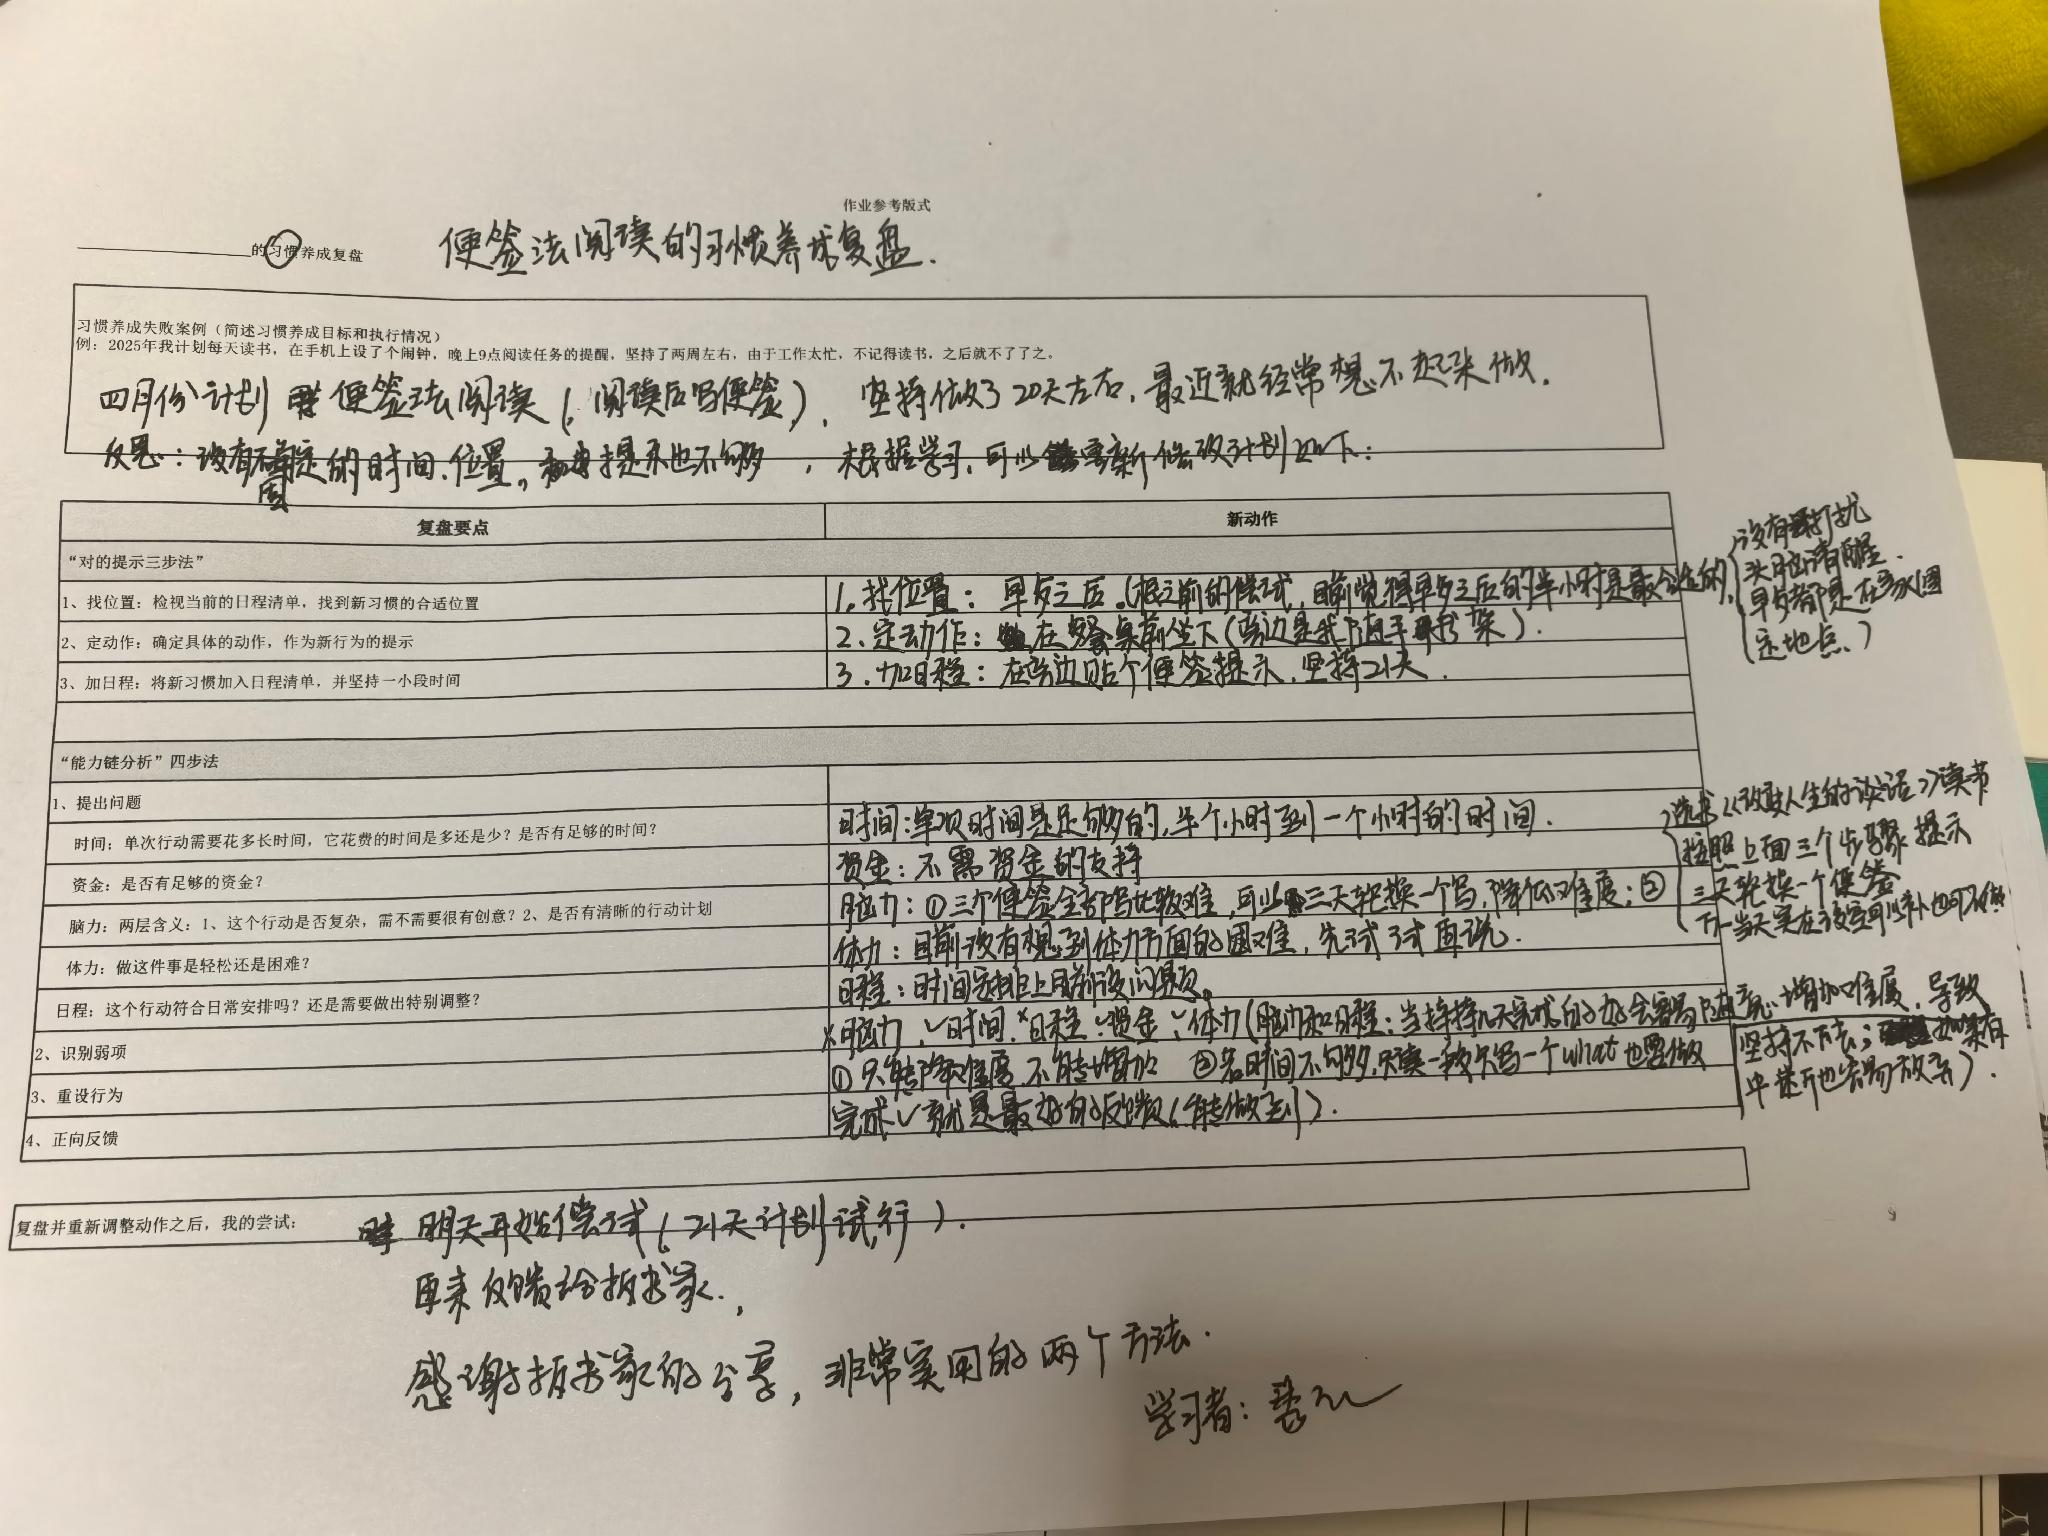 作业参考版式
的习惯养成复盘
便签法阅读的习惯养成复盘.
习惯养成失败案例（简述习惯养成目标和执行情况）
例：2025年我计划每天读书，在手机上设了个闹钟，晚上9点阅读任务的提醒，坚持了两周左右，由于工作太忙，不记得读书，之后就不了了之。
四月份计划用便签法阅读（阅读后写便签）， 坚持做了20天左右，最近就经常想不起来做.
反思：没有固定的时间、位置，提示也不够，根据学习，可以重新修改计划如下：
复盘要点 新动作
“对的提示三步法”
1、找位置：检视当前的日程清单，找到新习惯的合适位置
1. 找位置： 早上之后（根之前的偿试，目前觉得早上之后的半小时是最合适的，
没有打扰
头脑清醒.
早上都是在家（固
定地点）
2、定动作：确定具体的动作，作为新行为的提示
2. 定动作： 在餐桌前坐下（旁边是我书架）.
3、加日程：将新习惯加入日程清单，并坚持一小段时间
3. 加日程：在旁边贴个便签提示，坚持21天.
“能力链分析”四步法
1、提出问题
时间：单次行动需要花多长时间，它花费的时间是多还是少？是否有足够的时间？
时间：单次时间是足够的，半个小时到一个小时的时间.
资金：是否有足够的资金？
资金：不需资金的支持
脑力：两层含义：1、这个行动是否复杂，需不需要很有创意？2、是否有清晰的行动计划
脑力：①三个便签全部写比较难，可以三天轮换一个写，降低难度；②
选书《改变人生的谈话》读书
按照上面三个步骤提示
三天轮换一个便签
体力：做这件事是轻松还是困难？
体力：目前没有想到体力方面的困难，先试试再说.
日程：这个行动符合日常安排吗？还是需要做出特别调整？
日程：时间安排上目前没问题。
2、识别弱项
×脑力，✓时间，×日程✓资金✓体力（脑力和日程：当坚持几天完成的好会容易随意增加难度，导致
坚持不下去；如果有
中断也容易放弃）.
3、重设行为
①只能降低难度，不能增加 ②若时间不够，只读一段只写一个what也要做
4、正向反馈
完成✓就是最好的反馈（能做到）.
复盘并重新调整动作之后，我的尝试：
明天开始偿试（21天计划试行）.
再来反馈给拆书家.
感谢拆书家的分享，非常实用的两个方法.
学习者：